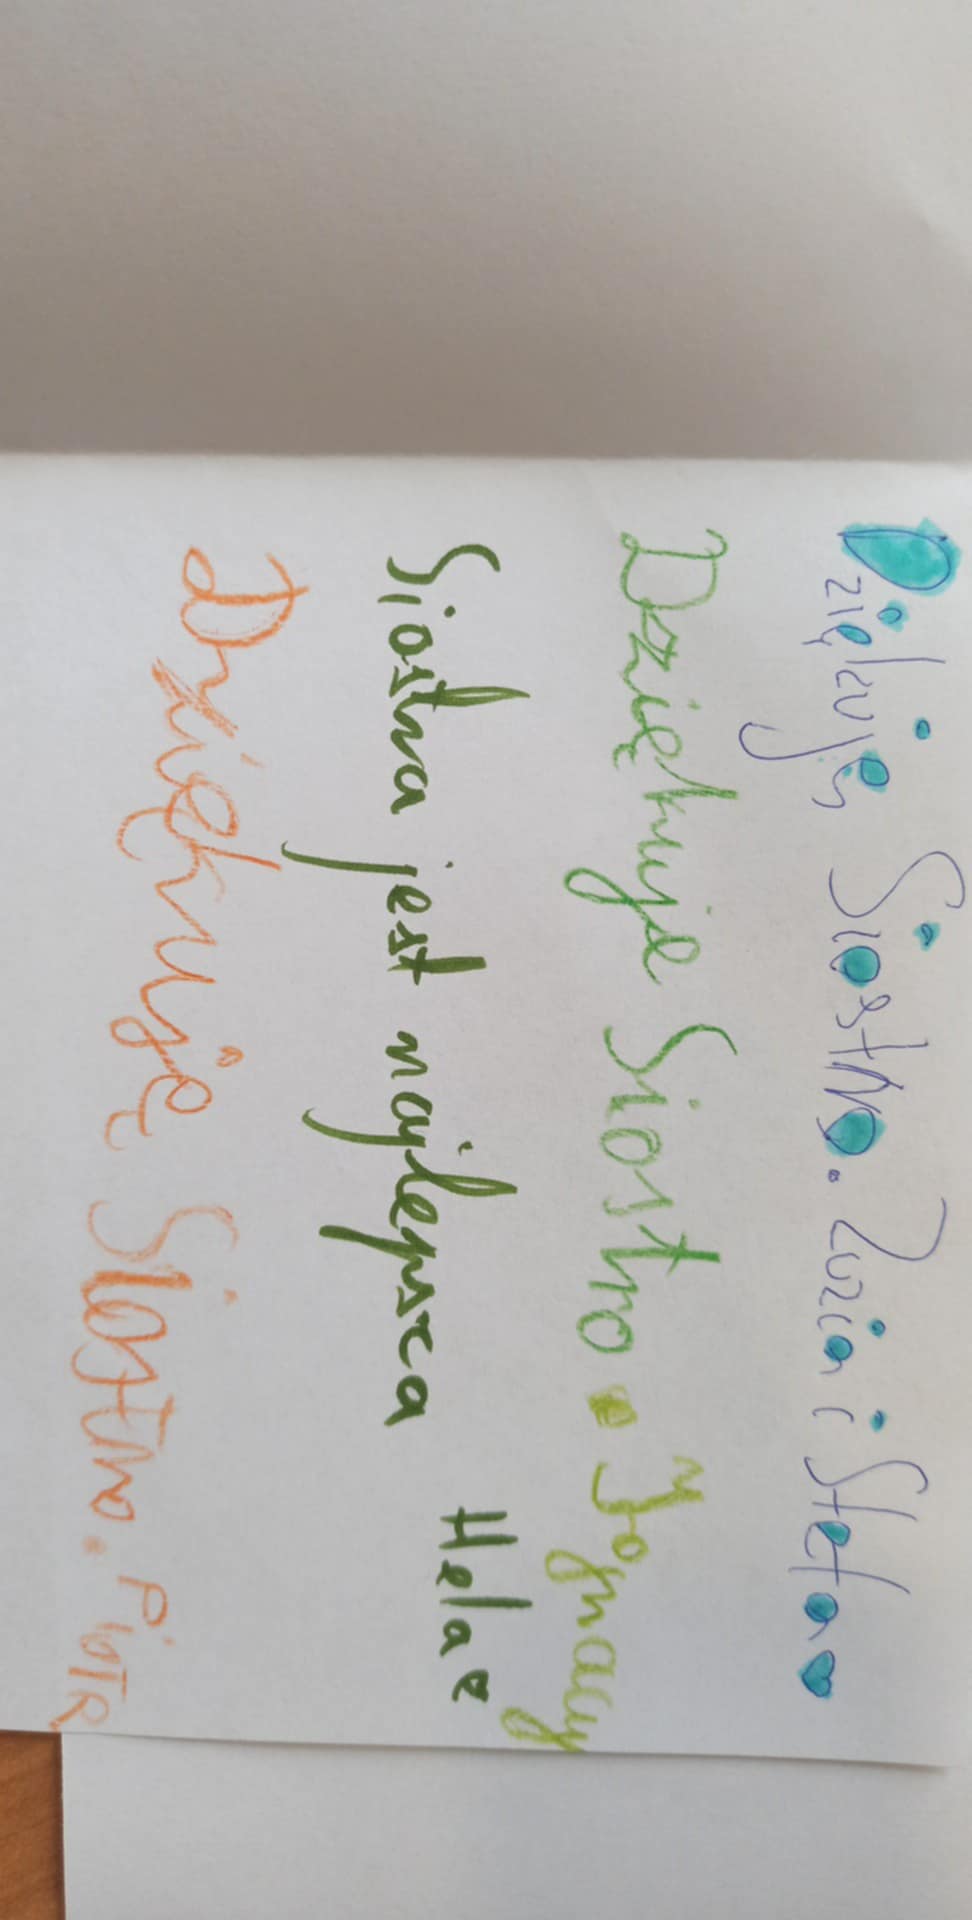 Dziękuję Siostro. Zuzia i Stefa
Dziękuje Siostro. Ignacy
Siostra jest najlepsza Hela
Dziękuję Siostro. PioTR